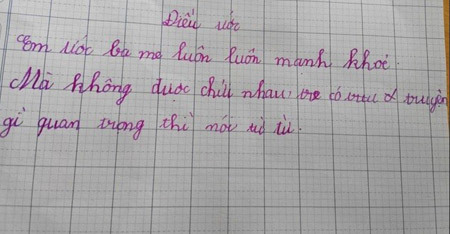 Điều ước
Em ước ba mẹ luôn luôn mạnh khoẻ.
Mà không được chửi nhau, có truyện
gì quan trọng thì nói từ từ.